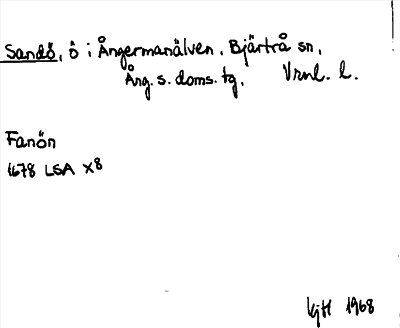 Sandö, ö i Ångermanälven, Bjärtrå sn,
Ång. s. doms. tg. Vrnl. l.
Fanön
1678 LSA X8
KjH 1968